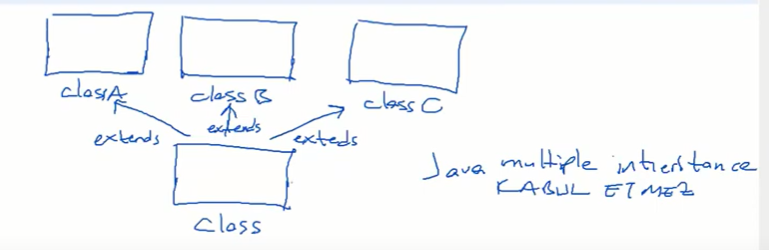 class A class B class C
extends extends exteds
Java multiple intherstance
KABUL ETMEZ
Class